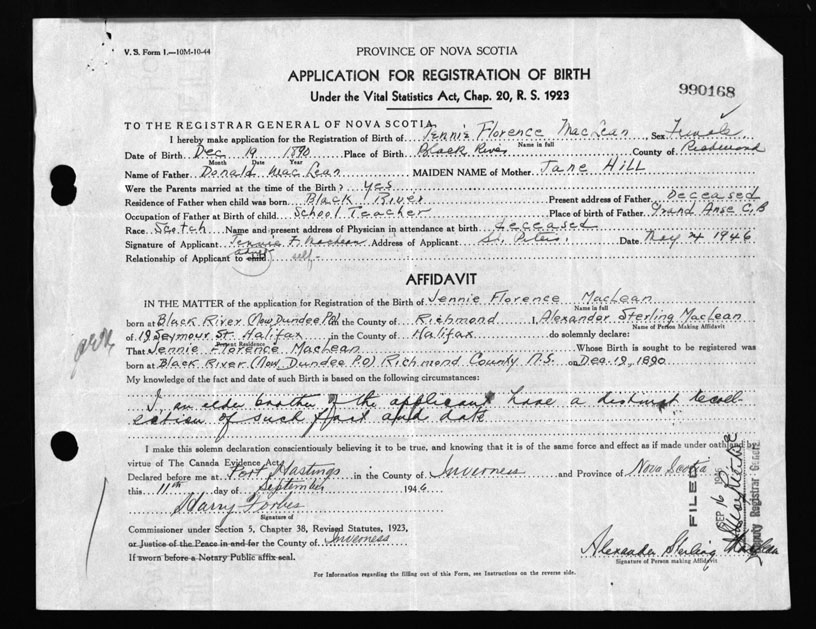 V. S. Form 1.—10M-10-44
PROVINCE OF NOVA SCOTIA
APPLICATION FOR REGISTRATION OF BIRTH
990168
Under the Vital Statistics Act, Chap. 20, R. S. 1923
TO THE REGISTRAR GENERAL OF NOVA SCOTIA
I hereby make application for the Registration of Birth of Jennie Florence MacLean, Sex Female
Name in full
Date of Birth Dec 19 1890 Place of Birth Black River County of Richmond
Month Date Year
Name of Father Donald MacLean MAIDEN NAME of Mother Jane Hill
Were the Parents married at the time of the Birth? yes
Residence of Father when child was born Black River Present address of Father Deceased
Occupation of Father at Birth of child School Teacher Place of birth of Father Grand Anse C.B
Race Scotch Name and present address of Physician in attendance at birth deceased
Signature of Applicant Jennie F. MacLean Address of Applicant St. Peters. Date May 4 1946
adult
Relationship of Applicant to child self
AFFIDAVIT
IN THE MATTER of the application for Registration of the Birth of Jennie Florence MacLean
Name in full
born at Black River (Now Dundee P.O) in the County of Richmond I, Alexander Sterling MacLean
Name of Person Making Affidavit
of 19 Seymour St. Halifax in the County of Halifax do solemnly declare:
Present Residence
That Jennie Florence MacLean Whose Birth is sought to be registered was
born at Black River (Now Dundee P.O) Richmond County N.S. on Dec. 19, 1890
My knowledge of the fact and date of such Birth is based on the following circumstances:
I an elder brother of the applicant have a distinct recoll-
ection of such fact and date
I make this solemn declaration conscientiously believing it to be true, and knowing that it is of the same force and effect as if made under oath and by
virtue of The Canada Evidence Act.
Declared before me at Port Hastings in the County of Inverness and Province of Nova Scotia
this 11th day of September 1946
Harry Forbes
Signature of
Commissioner under Section 5, Chapter 38, Revised Statutes, 1923,
or Justice of the Peace in and for the County of Inverness
If sworn before a Notary Public affix seal.
Alexander Sterling MacLean
Signature of Person making Affidavit
FILED
SEP 16
Deputy Registrar General
For Information regarding the filling out of this Form, see Instructions on the reverse side.